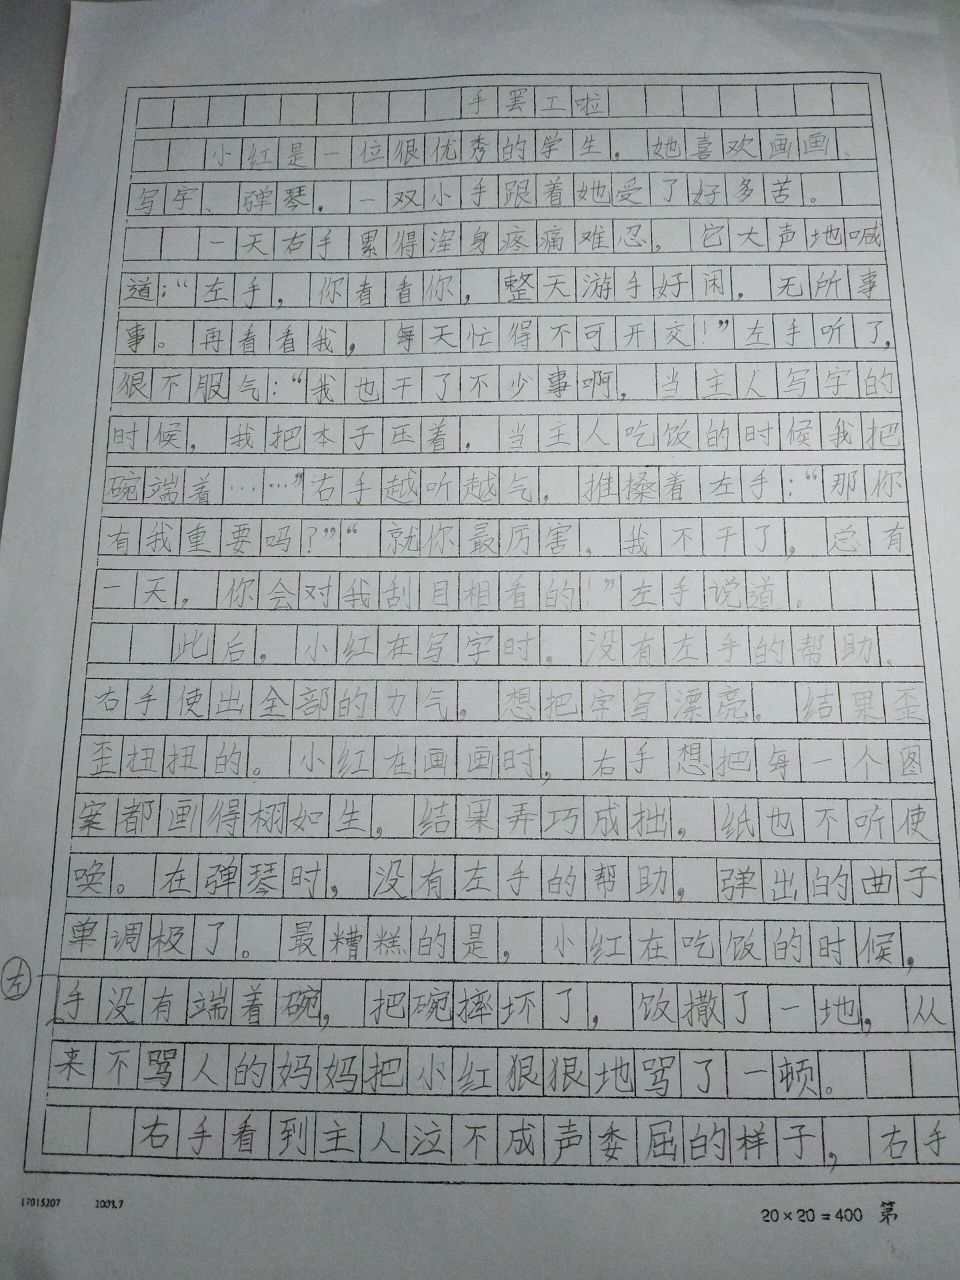 手罢工啦
小红是一位很优秀的学生，她喜欢画画、
写字、弹琴，一双小手跟着她受了好多苦。
一天右手累得浑身疼痛难忍，它大声地喊
道：“左手，你看看你，整天游手好闲，无所事
事。再看看我，每天忙得不可开交！”左手听了，
很不服气：“我也干了不少事啊，当主人写字的
时候，我把本子压着，当主人吃饭的时候我把
碗端着……”右手越听越气，推搡着左手：“那你
有我重要吗？”“就你最厉害，我不干了，总有
一天，你会对我刮目相看的！”左手说道。
此后，小红在写字时，没有左手的帮助，
右手使出全部的力气，想把字写漂亮，结果歪
歪扭扭的。小红在画画时，右手想把每一个图
案都画得栩如生，结果弄巧成拙，纸也不听使
唤。在弹琴时，没有左手的帮助，弹出的曲子
单调极了。最糟糕的是，小红在吃饭的时候，
左
手没有端着碗，把碗摔坏了，饭撒了一地，从
来不骂人的妈妈把小红狠狠地骂了一顿。
右手看到主人泣不成声委屈的样子，右手
17015207 2003.7 20×20=400 第